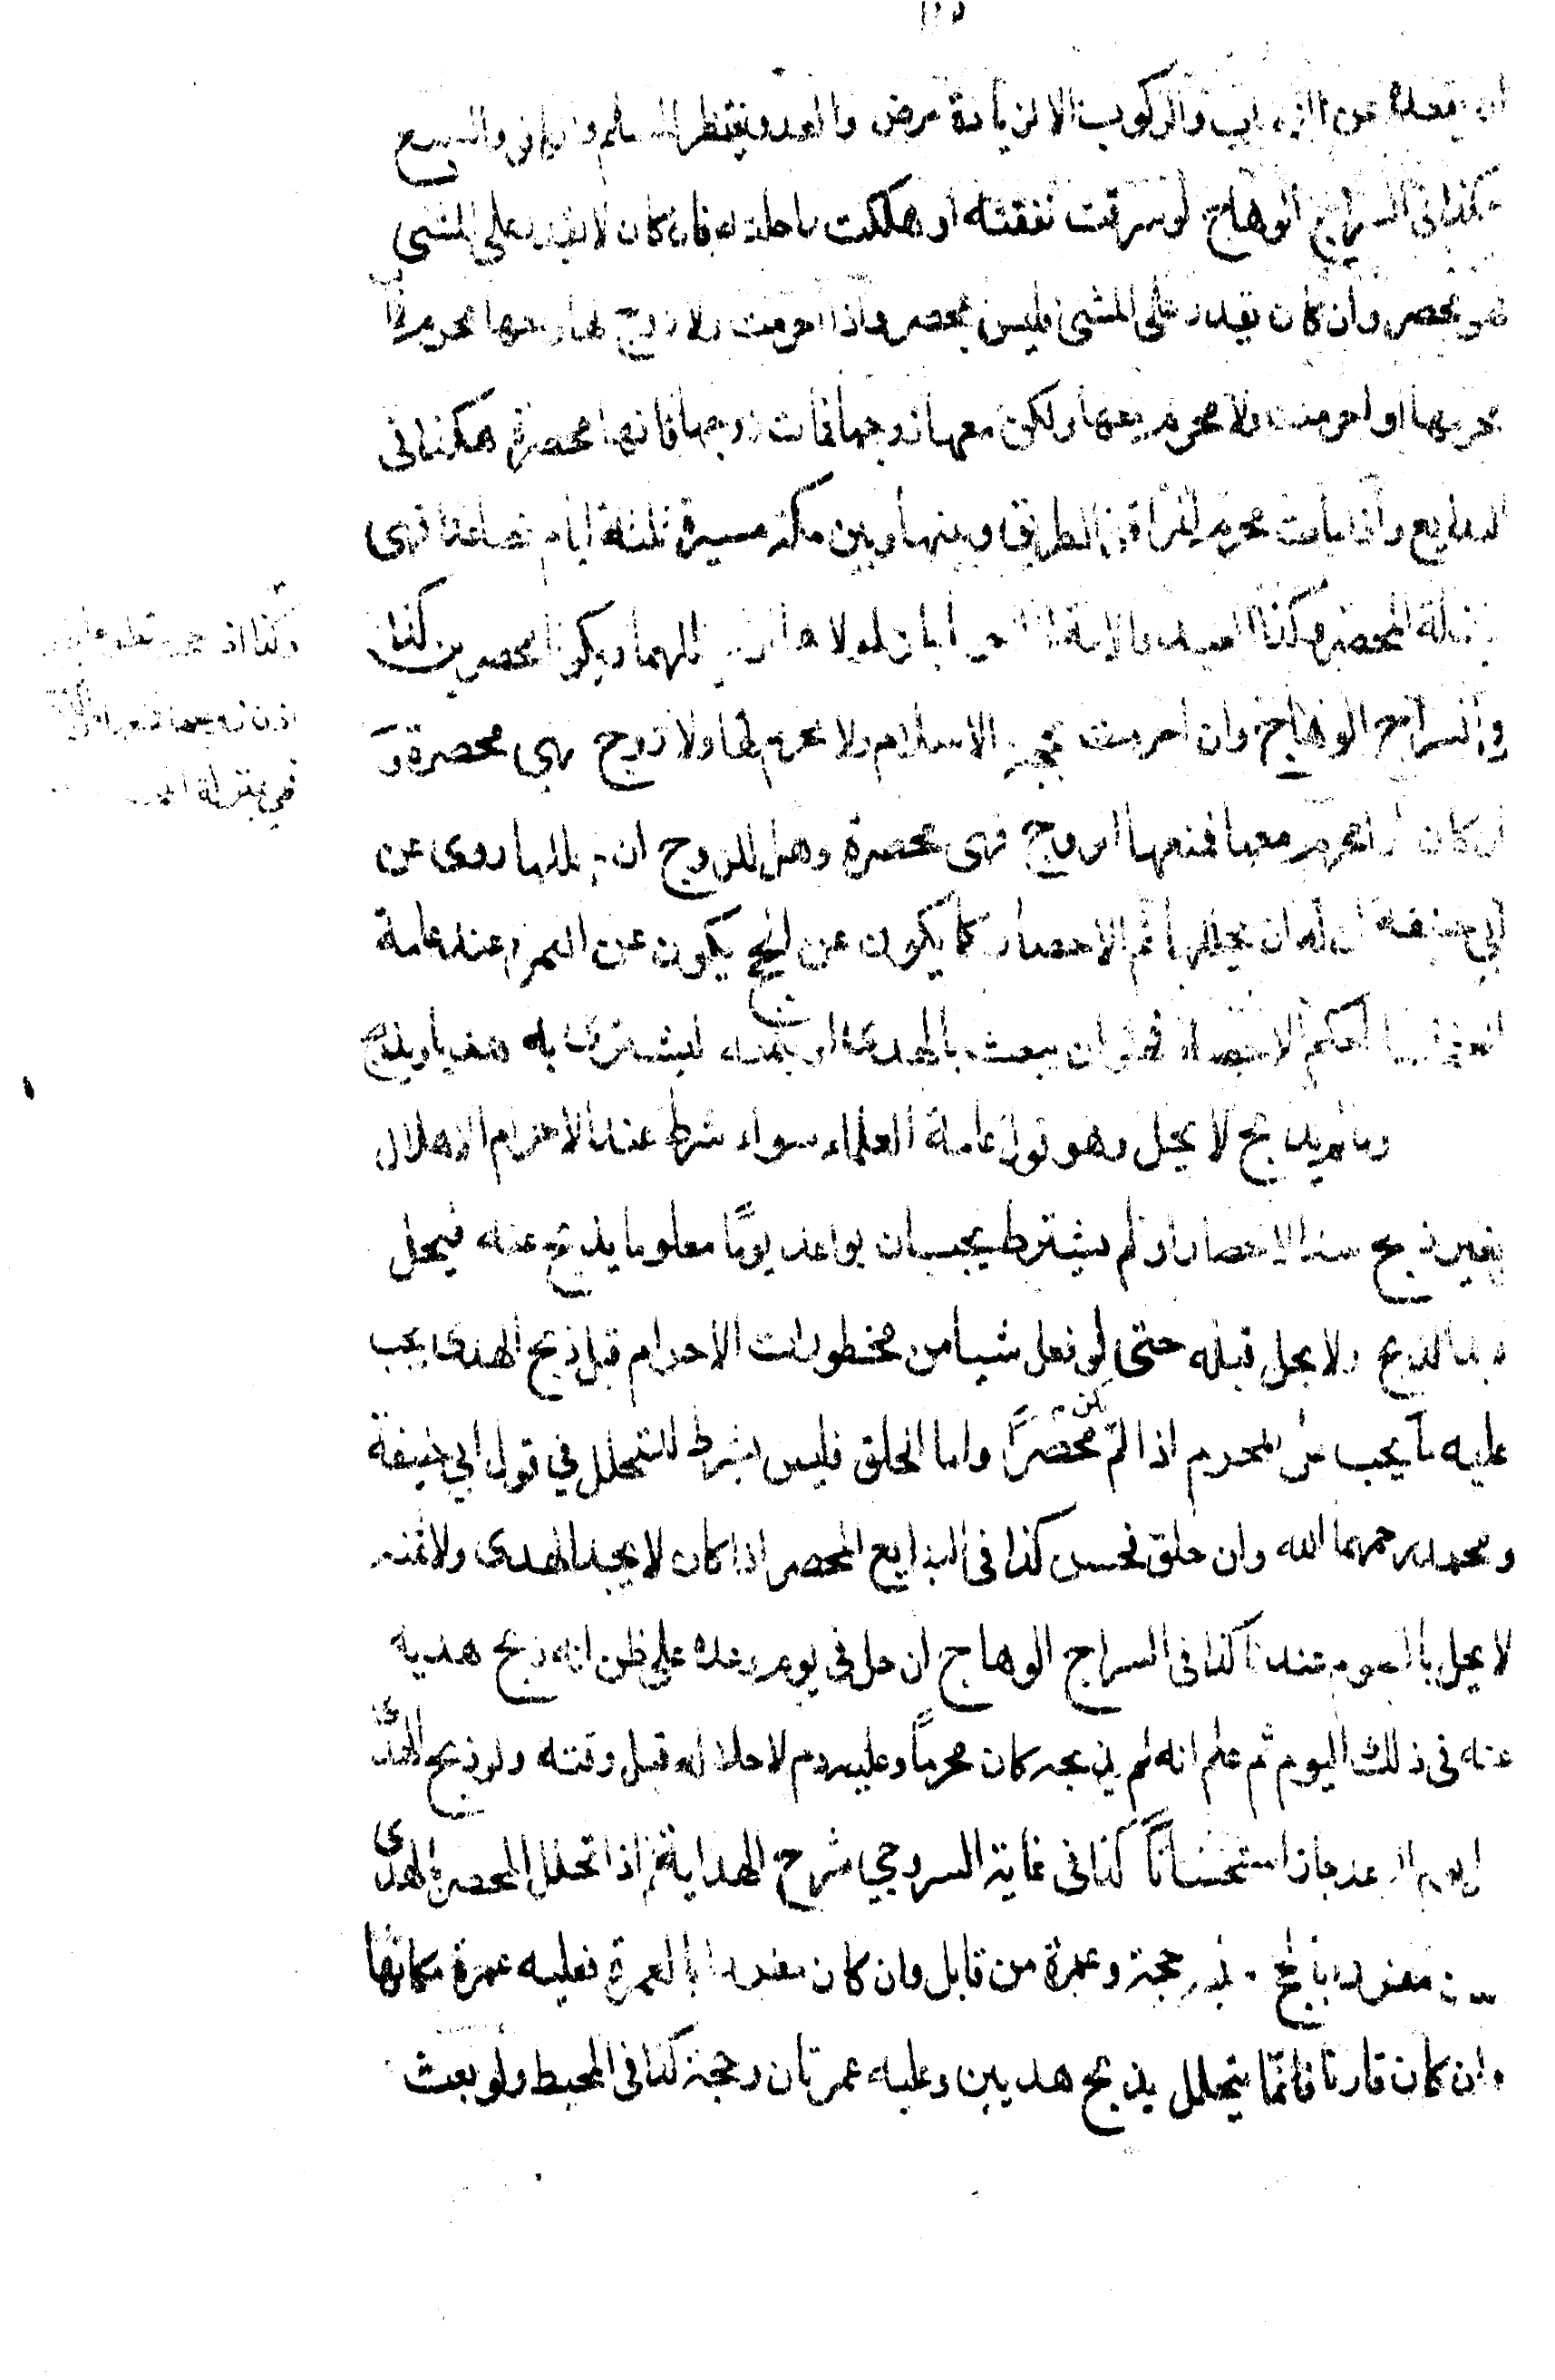 ان يقعده عن الذهاب والركوب الا لزيادة مرض والعدو ينتظر المسلم والكافر والسبع
هكذا فى السراج الوهاج لو سرقت نفقته او هلكت راحلته فان كان لا يقدر على المشى
فهو محصر وان كان يقدر على المشى فليس بمحصر واذا احرمت ولا زوج لها ومعها محرم فمات
محرمها او احرمت ولا محرم معها ولكن معها زوجها فمات زوجها فانها محصرة هكذا فى
البدايع واذا مات محرم المراة فى الطريق وبينها وبين مكة مسيرة ثلثة ايام فصاعدا فهى
بمنزلة المحصر وكذا العبد والامة
فى السراج الوهاج وان احرمت بحجة الاسلام ولا محرم لها ولا زوج فهى محصرة و
ان كان لها محرم معها فمنعها الزوج فهى محصرة وهل للزوج ان يحللها روى عن
ابى حنيفة ان له ان يحللها ثم الاحصار كما يكون عن الحج يكون عن العمرة عند عامة
العلماء حكم الاحصار فهو ان يبعث بالهدى او بثمنه ليشترى به هديا ويذبح
وما لم يذبح لا يحل وهو قول عامة العلماء سواء شرط عند الاحرام الاهلال
بغير ذبح عند الاحصار او لم يشترط يجب ان يواعد يوما معلوما يذبح عنه فيحل
بعد الذبح ولا يحل قبله حتى لو فعل شيا من محظورات الاحرام قبل ذبح الهدى يجب
عليه ما يجب على المحرم اذا لم يكن محصرًا واما الحلق فليس بشرط للتحلل في قول ابي حنيفة
ومحمد رحمهما الله وان حلق فحسن كذا فى البدايع المحصر اذا كان لا يجد الهدى ولا ثمنه
لا يحل بالصوم عندنا كذا فى السراج الوهاج ان حل فى يوم وعده على ظن انه ذبح هديه
عنه فى ذلك اليوم ثم علم انه لم يذبحه كان محرمًا وعليه دم لاحلاله قبل وقته ولو ذبح الهدى
قبل يوم الوعد جاز استحسانًا كذا فى غاية السروجي شرح الهداية ثم اذا تحلل المحصر بالهدى
مفردا بالحج فعليه حجة وعمرة من قابل وان كان مفردا بالعمرة فعليه عمرة مكانها
وان كان قارنا فانما يتحلل بذبح هديين وعليه عمرتان وحجة كذا فى المحيط ولو بعث